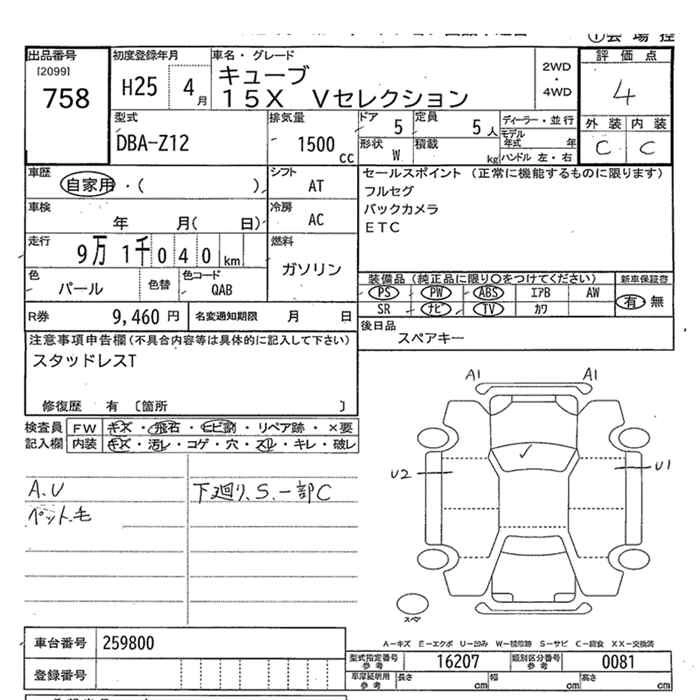 出品番号 初度登録年月 車名・グレード 評価点
[2099] H25 4月 キューブ 2WD・4WD 4
758 15X Vセレクション 外装 内装
型式 排気量 ドア 5 定員 5人 ディーラー・並行 C C
DBA-Z12 1500cc 形状 W 積載 kg モデル年式 年
ハンドル 左・右
車歴 シフト セールスポイント (正常に機能するものに限ります)
自家用・( ) AT フルセグ
車検 冷房 バックカメラ
年 月( 日) AC ETC
走行 燃料
9万 1千 0 4 0 km ガソリン
色 色替 色コード 装備品 (純正品に限り○をつけてください) 新車保証書
パール QAB PS PW ABS エアB AW 有 無
R券 9,460 円 名変通知期限 月 日 SR ナビ TV カワ
注意事項申告欄(不具合内容等は具体的に記入して下さい) 後日品
スタッドレスT スペアキー
修復歴 有 〔箇所 〕
検査員 FW キズ・飛石・ヒビ割・リペア跡・×要
記入欄 内装 キズ・汚レ・コゲ・穴・スレ・キレ・破レ
A1 A1
U2 U1
A.U 下廻り、S.一部C
ペット毛
スペア
車台番号 259800
A-キズ E-エクボ U-凹み W-補修跡 S-サビ C-腐食 XX-交換済
型式指定番号 参考 16207 類別区分番号 参考 0081
登録番号
車庫証明用 参考 長さ cm 幅 cm 高さ cm